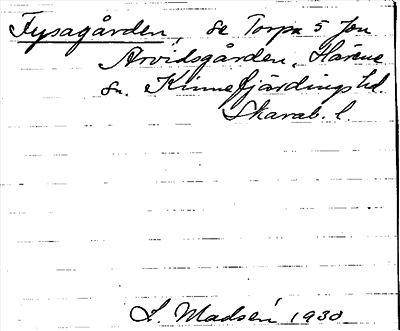 Fysagården, se Torpa 5 Jon
Arvidsgården, Härene
sn. Kinnefjärdings hd.
Skarab. l.
S. Madsén 1930